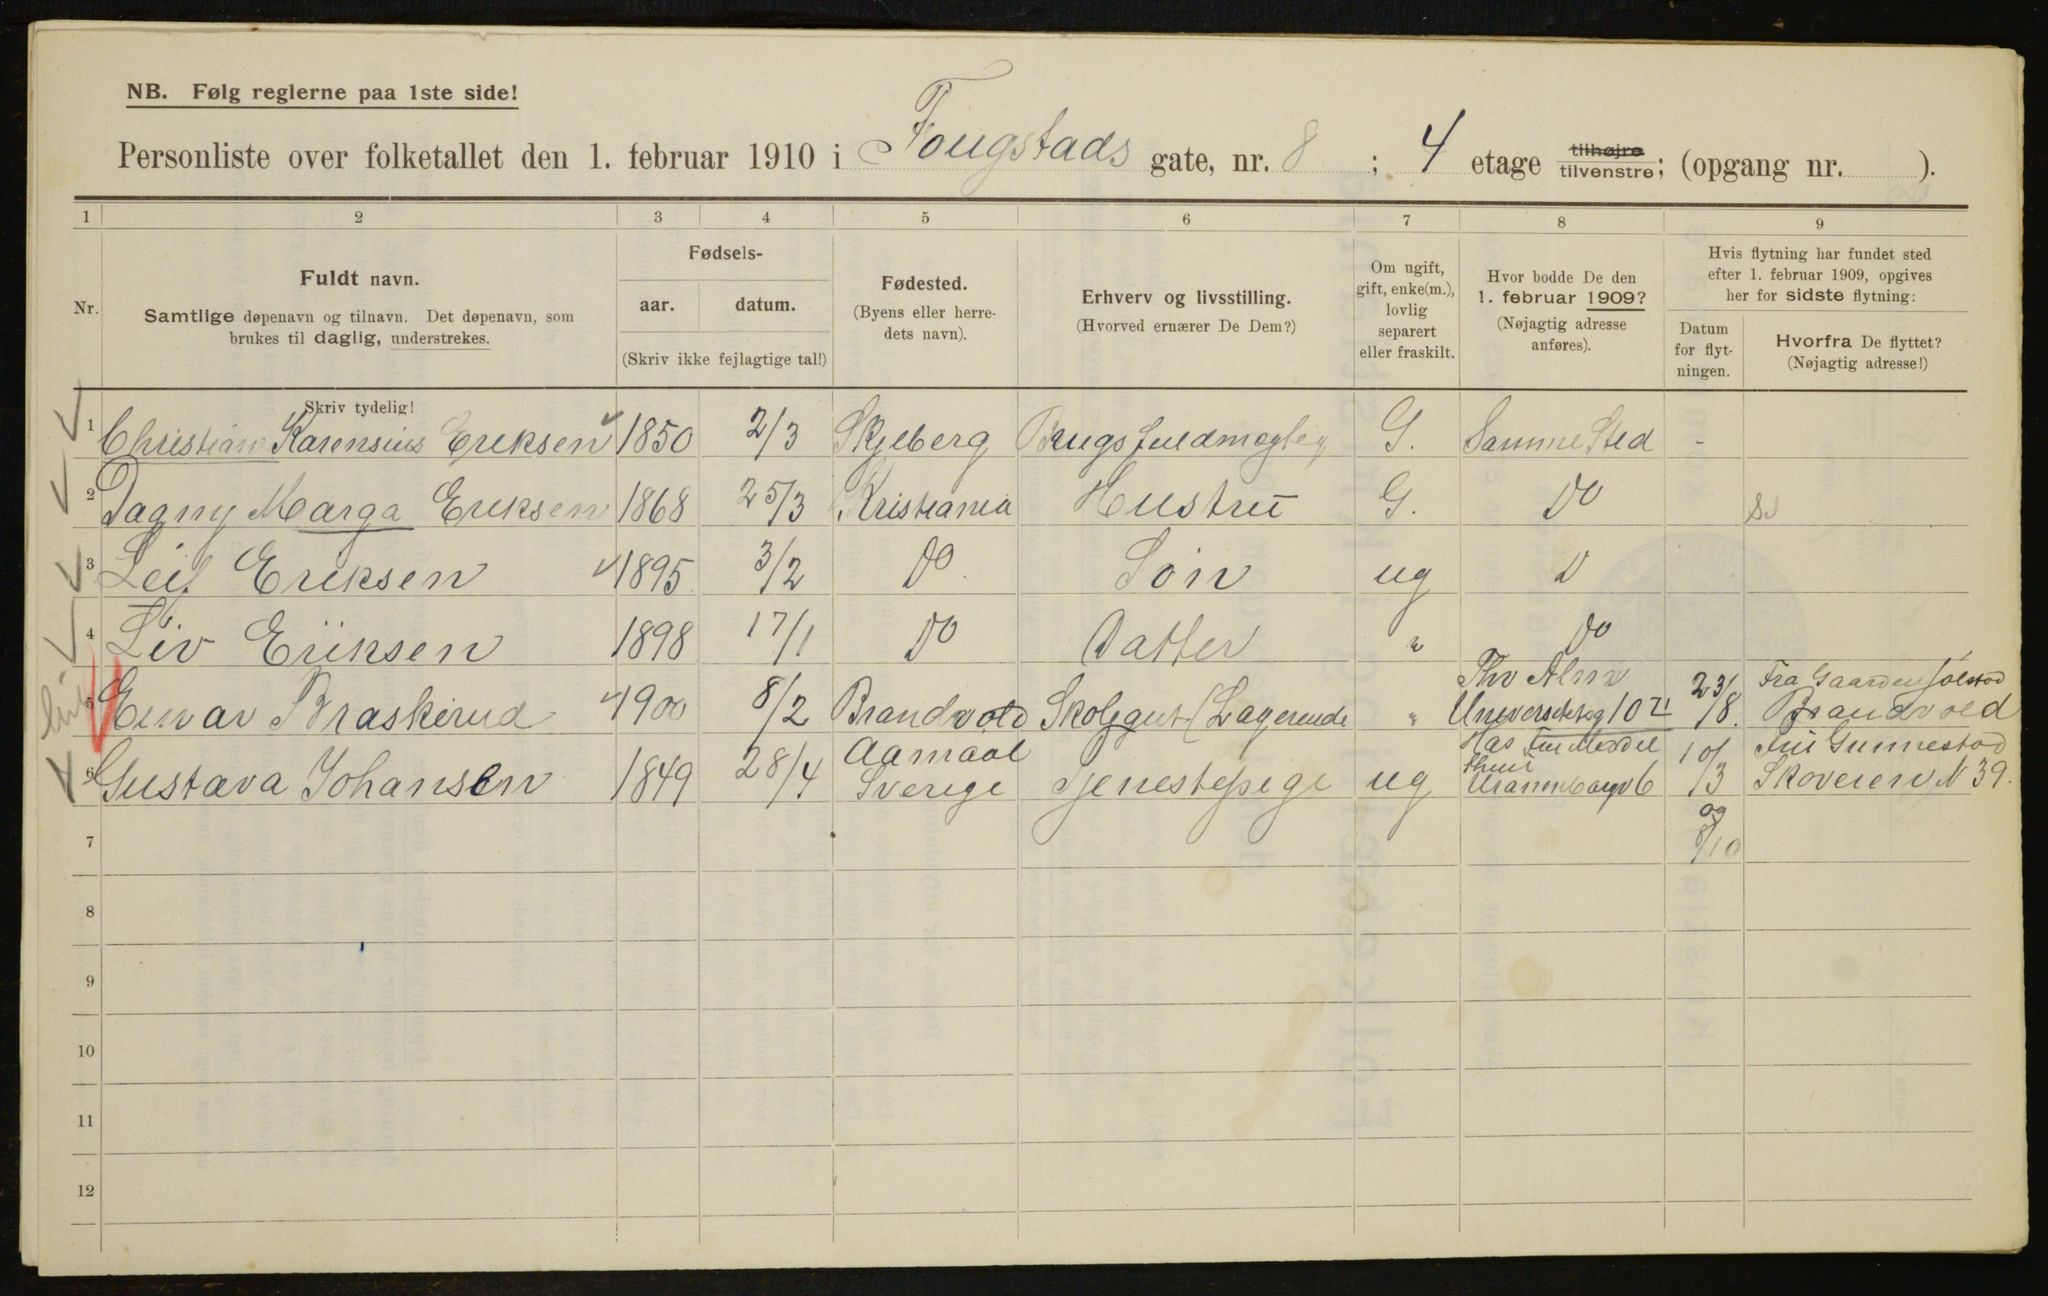 NB. Følg reglerne paa 1ste side!
Personliste over folketallet den 1. februar 1910 i Fougstads gate, nr. 8 ; 4 etage tilhøjre tilvenstre; (opgang nr. ).
1 2 3 4 5 6 7 8 9
Nr.
Fuldt navn.
Samtlige døpenavn og tilnavn. Det døpenavn, som
brukes til daglig, understrekes.
Fødsels-
aar. datum.
(Skriv ikke fejlagtige tal!)
Fødested.
(Byens eller herre-
dets navn).
Erhverv og livsstilling.
(Hvorved ernærer De Dem?)
Om ugift,
gift, enke(m.),
lovlig
separert
eller fraskilt.
Hvor bodde De den
1. februar 1909?
(Nøjagtig adresse
anføres).
Hvis flytning har fundet sted
efter 1. februar 1909, opgives
her for sidste flytning:
Datum
for flyt-
ningen.
Hvorfra De flyttet?
(Nøjagtig adresse!)
Skriv tydelig!
1 Christian Karensius Eriksen 1850 2/3 Skjeberg Brugsfuldmægtig G. Samme Sted -
2 Dagny Marga Eriksen 1868 25/3 Kristiania Hustru G. Do
3 Leif Eriksen 1895 3/2 Do Søn ug D
4 Liv Eriksen 1898 17/1 Do Datter " Do
5 Einar Braskerud 1900 8/2 Brandvold Skolegut (Logerende "
Universitetsg 10 23/8. Fra Gaarden
Brandvold
6 Gustava Johansen 1849 28/4 Aamaal
Sverige Tjenestepige ug
Uranienborgv 6 10/3 Fru Gunnestad
Skoveien N 39.
og
8/10
7
8
9
10
11
12